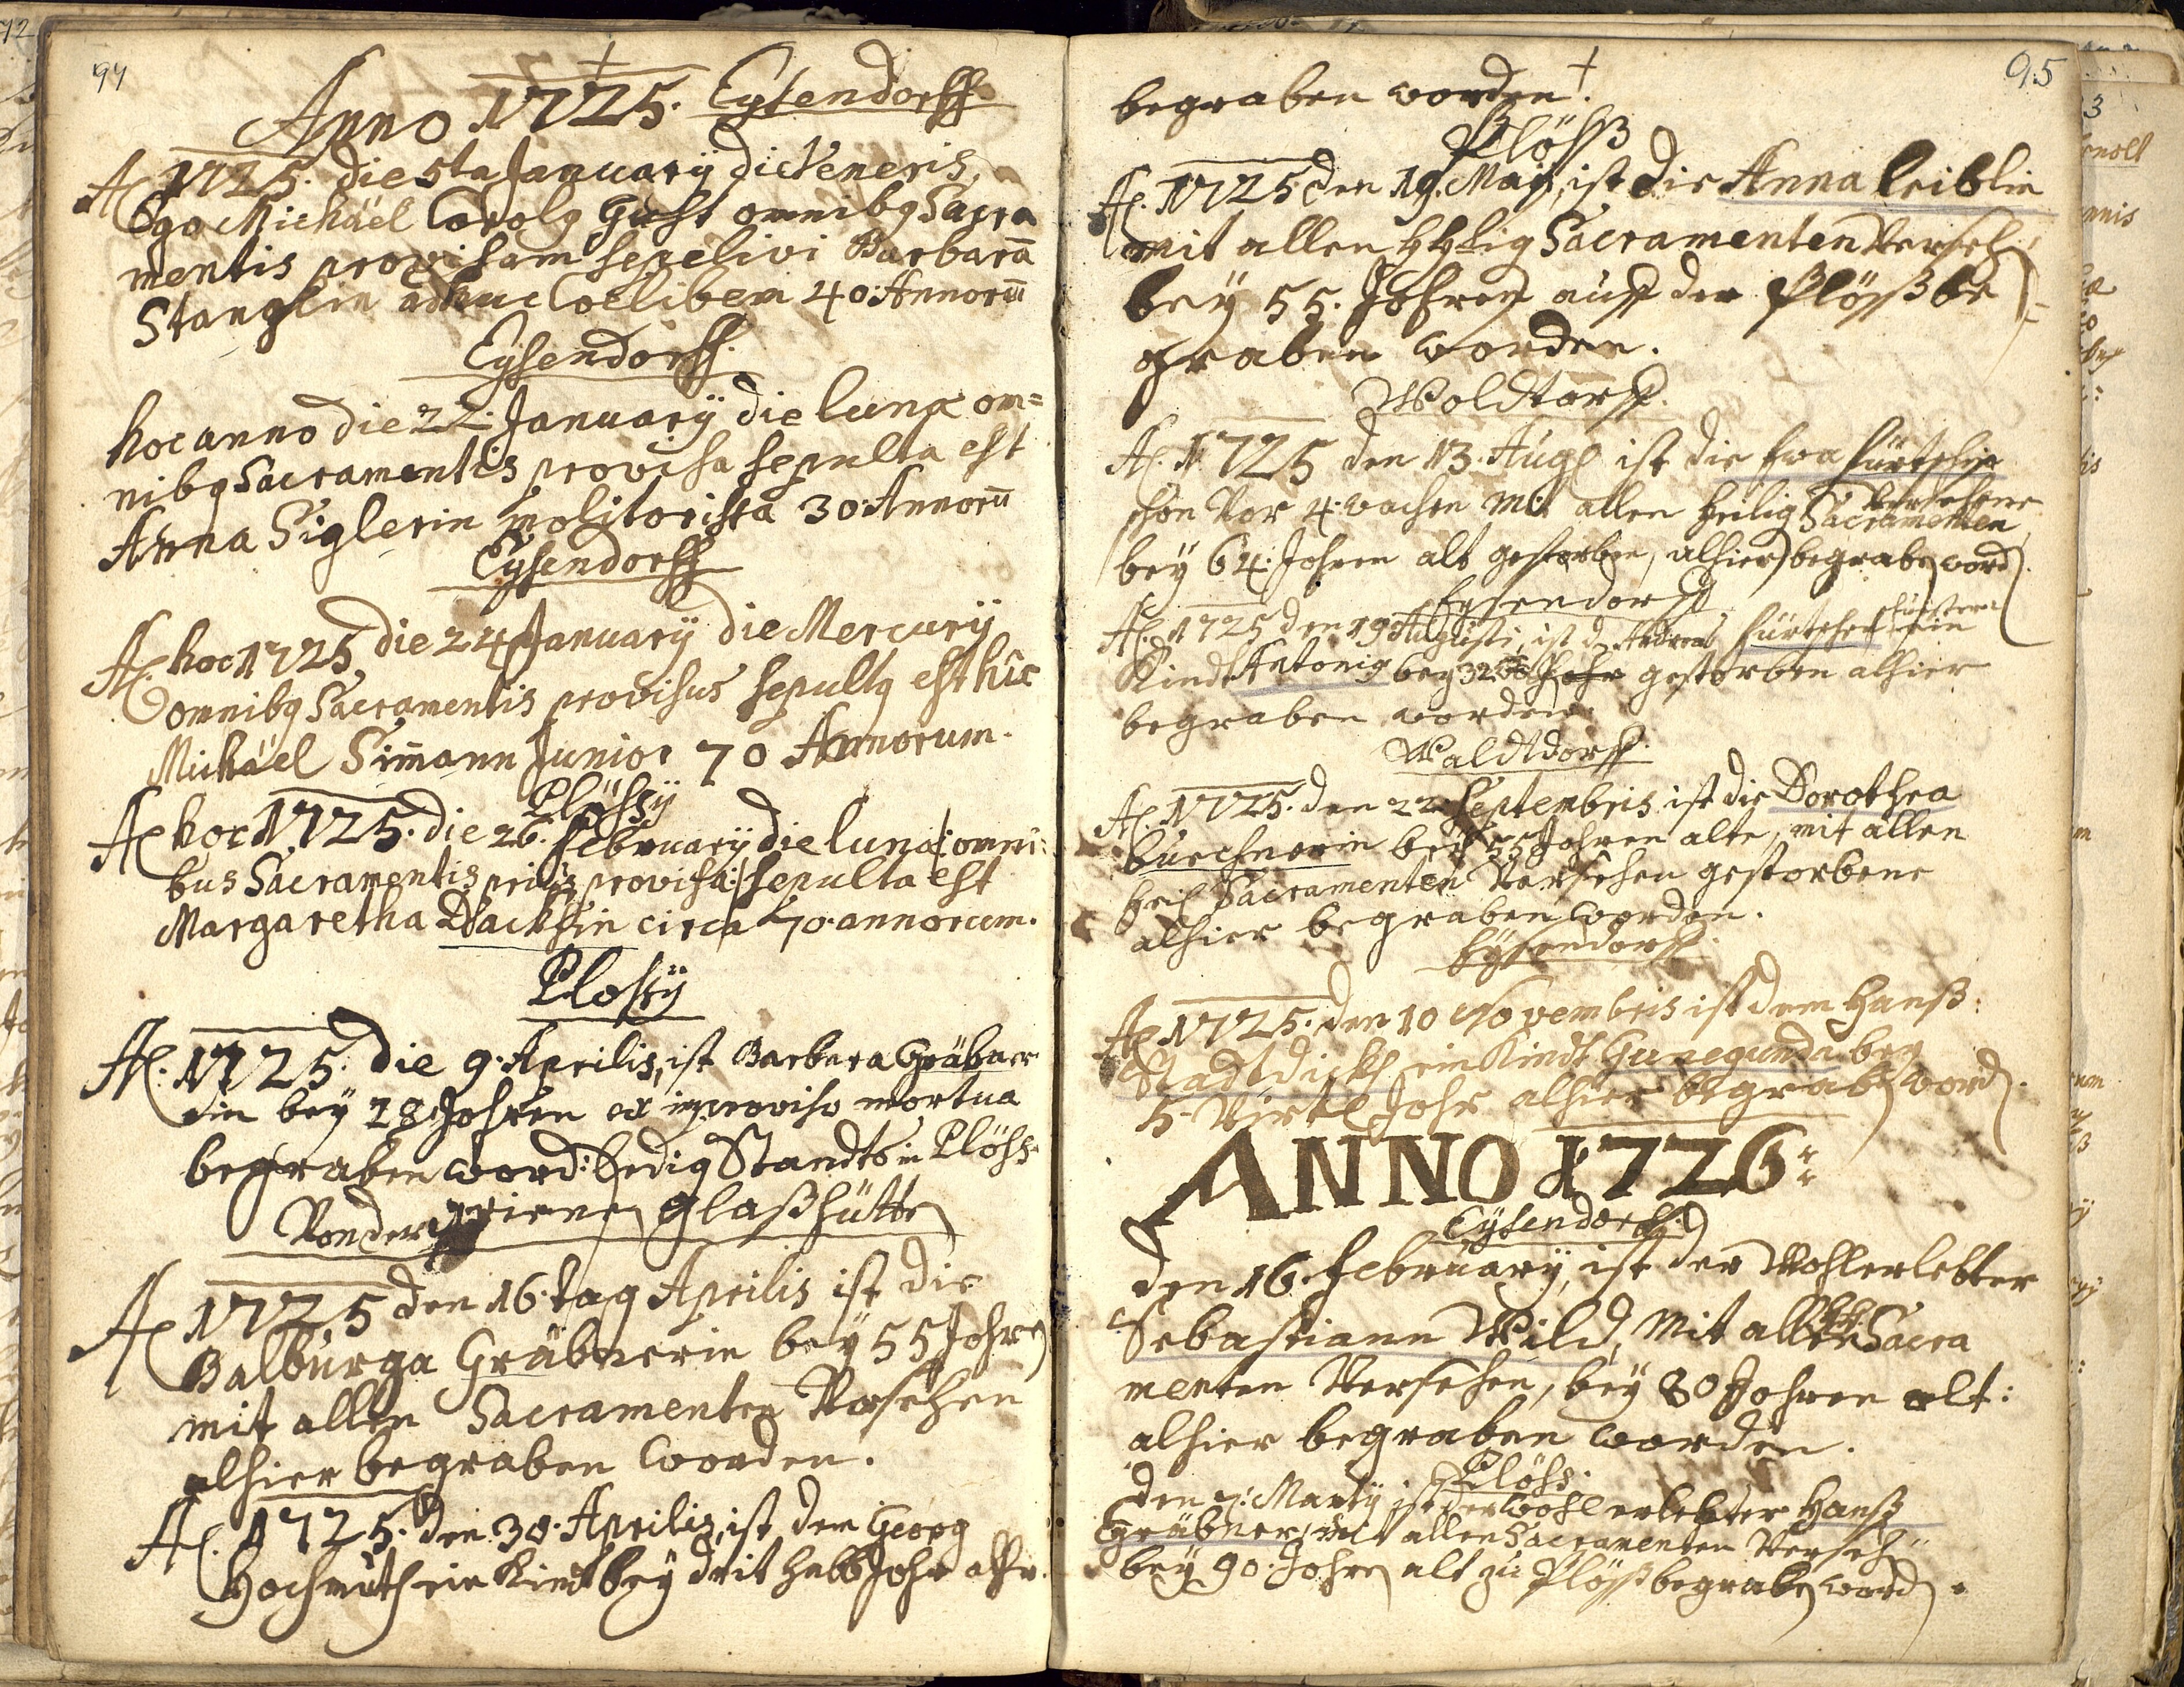 94
Anno 1725. Eysendorff
A 1725. die 5ta January die Veneris,
Ego Michäel Carolg Gust omnibg Sacra
mentis provisam sepelivi Barbarā
Stanglin adhuc Coelibem 40. Annorū
Eysendorff.
hoc anno die 22. January die lunæ om=
nibg Sacramentis provisa sepulta est
Anna Siglerin molitorissa 30. Annorū
Eysendorff
A. hoc 1725 die 24 January die Mercury
omnibg Sacramentis provisus sepultg est hîc
Michäel Sim̄ann Junior 70 Annorum.
Plössÿ
A hoc 1725. die 26. February die lunæ /: omni:
bus Sacramentis priûs provisa :/ sepulta est
Margaretha Dacksin circa 70. annorum.
Plossÿ
A. 1725. die 9. Aprilis, ist Barbara Gräbner
in bey 28 Jahren ex improviso mortua
begraben word: Ledig Standts in Plöss
Von der grienen Glaßhütten
A 1725 den 16. tag Aprilis ist die
Balburga Gräbnerin bey 55 Jahren
mit allen Sacramenten Versehen
alhier begraben worden.
A. 1725. den 30. Aprilis, ist dem Georg
Hochmuth ein Kindt bey drit halb Jahr alhr.
95
begraben worden.
Plöss
A. 1725 den 19. May, ist die Anna Leiblin
mit allen HHlig Sacramenten Verseh
bey 55. Jahren auff der Plöss be
graben worden.
Woldtorff.
A. 1725 den 13. Aug ist die Eva Fürtschin
schon Vor 4. wachen mit allen Heilig Sacramenten versehene
bey 64. Jahren alt gestorben, alhier begraben word.
Eysendorff
A. 1725 den 19 Augusti, ist d. Andreas Fürtscher ein
Kindt Antonig bey 32 Jahr gestorben alhier
begraben worden.
Waldtdorff.
A. 1725. den 22. Septembris ist die Dorothea
Buechnerin bey 55 Jahren alte, mit allen
Heil Sacramenten Versehen gestorbene
alhier begraben worden.
Eysendorff.
A 1725. den 10 Novembris ist dem Hanß:
Stadtdickh ein Kindt Gunegunda bey
5. Virtl Jahr alhier begraben word.
ANNO 1726:
Eysendorff.
den 16. February, ist der Wohlerlebter
Sebastiann Wild, mit allen Sacra
menten Versehen, bey 80 Jahren alt:
alhier begraben worden.
Plöss.
den 7. Marty ist der wohl erlebter Hanß
Gräbner, mit allen Sacramenten Verseh
bey 90. Jahren alt zu Plöss begraben word.